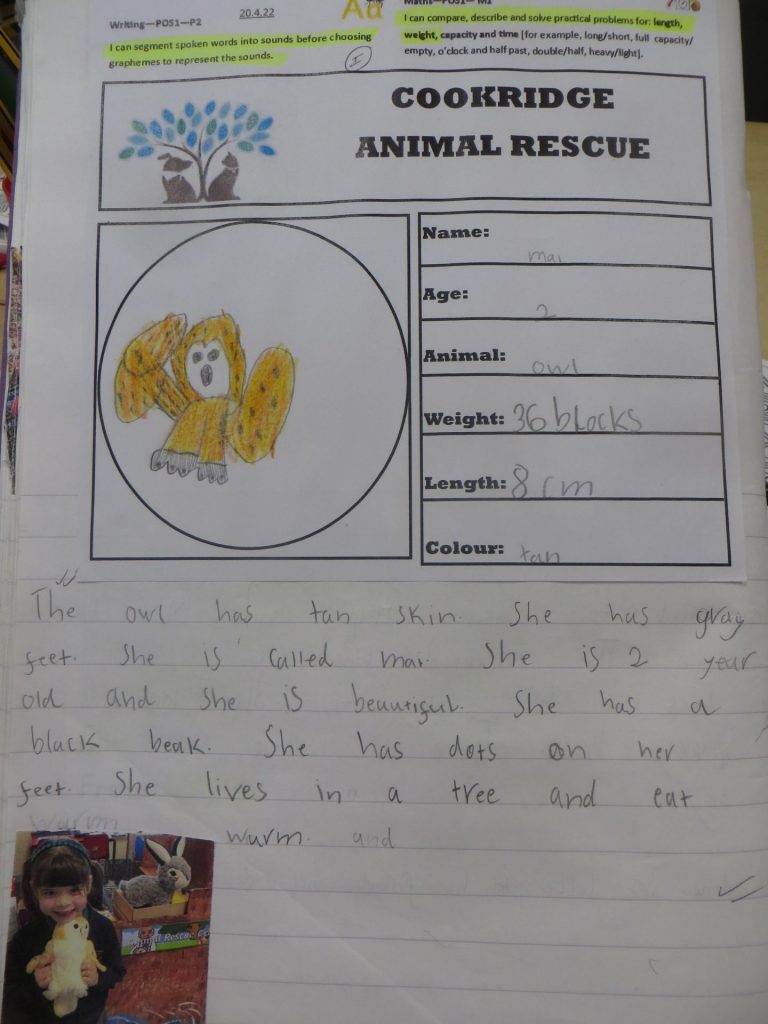 Writing—POS1—P2
20.4.22
Aa
I can segment spoken words into sounds before choosing
graphemes to represent the sounds.
I
Maths—POS1— M1
I can compare, describe and solve practical problems for: length,
weight, capacity and time [for example, long/short, full capacity/
empty, o'clock and half past, double/half, heavy/light].
COOKRIDGE
ANIMAL RESCUE
Name: mai
Age: 2
Animal: owl
Weight: 36 blocks
Length: 8 cm
Colour: tan
The owl has tan skin. She has gray
feet. She is called mai. She is 2 year
old and she is beautiful. She has a
black beak. She has dots on her
feet. She lives in a tree and eat
wurm wurm. and
Animal Rescue